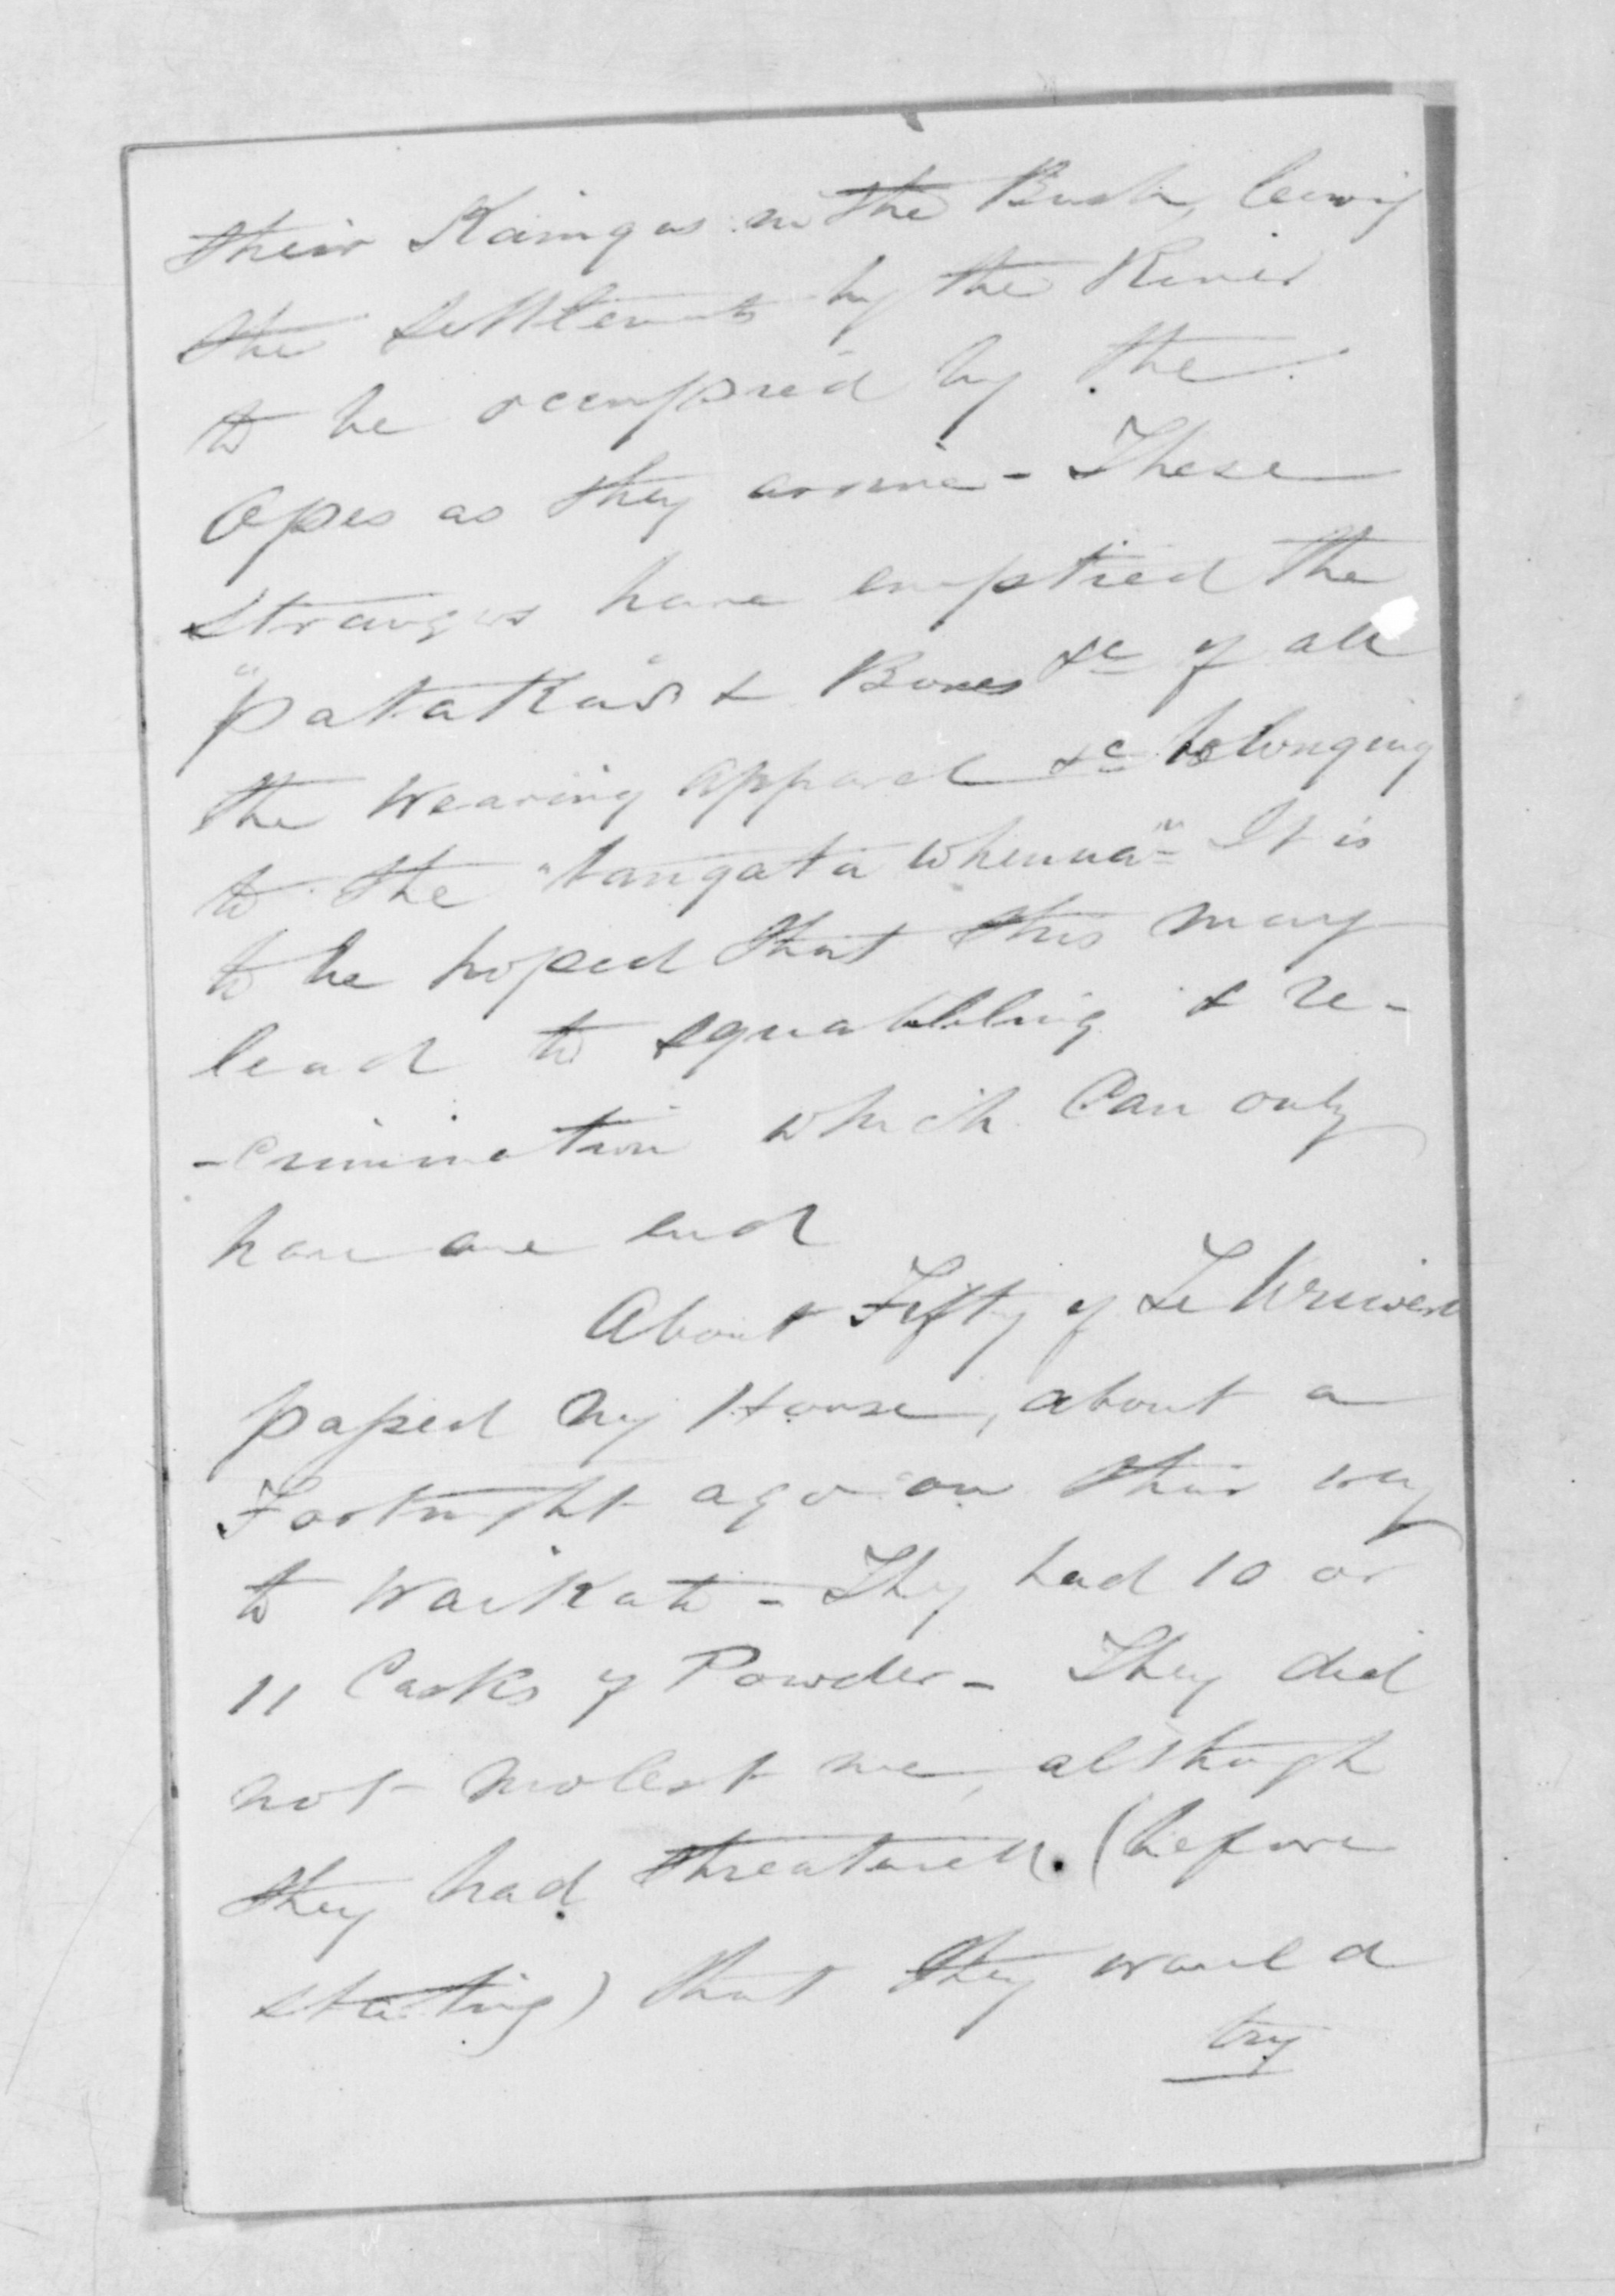 their Kaingas in the Bush, leaving
the settlements by the River
to be occupied by the
Opes as they arrive - These
strangers have emptied the
"patakas" & Boxes &c of all
the wearing apparel &c belonging
to the "tangata whenua" - It is
to be hoped that this may
lead to squabbling & re-
-crimination which can only
have one end
About Fifty of Te Uriwera
passed my House, about a
Fortnight ago on their way
to Waikato - They had 10 or
11 Casks of Powder - They did
not molest me, although
they had threatened (before
starting) that they would
try